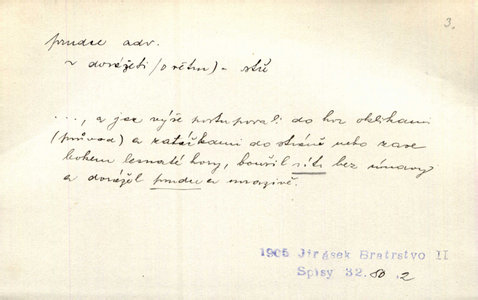 3.
prudce adv.
~ dorážeti (o větru) -
..., a jak výše postupovali do hor oklikami
(průvod) a zatáčkami do stráně nebo
bokem lesnaté hory, bouřil bez únavy
a dorážel prudce a mrazivě.
1905 Jirásek Bratrstvo II
Spisy 32. 80.2